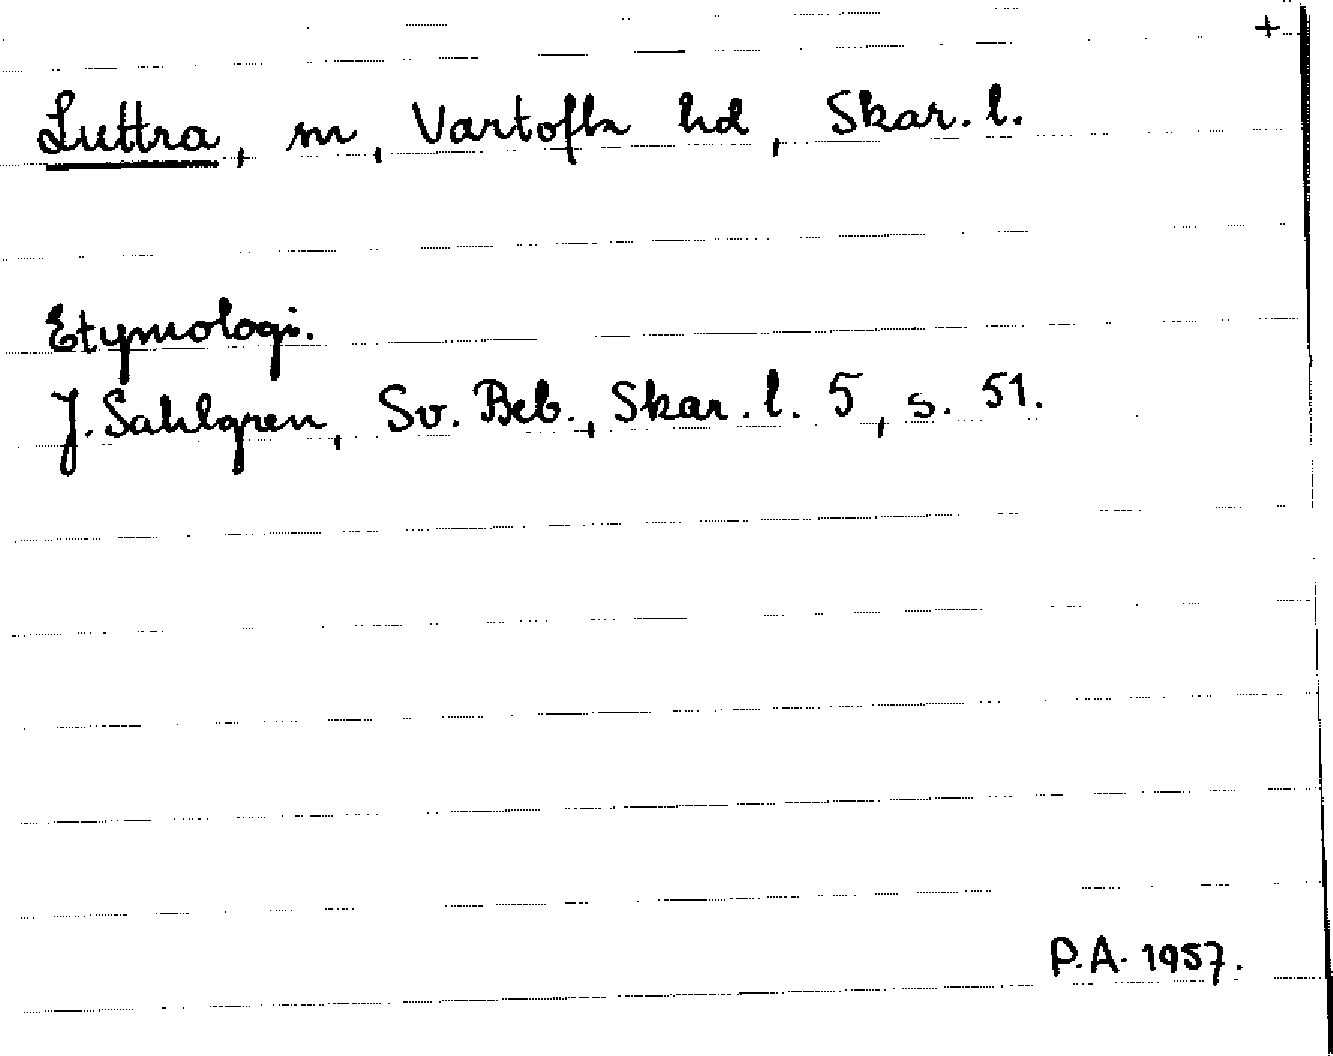 +
Luttra, sn, Vartofta hd, Skar. l.
Etymologi.
J. Sahlgren, Sv. Beb., Skar. l. 5, s. 51.
P.A. 1957.